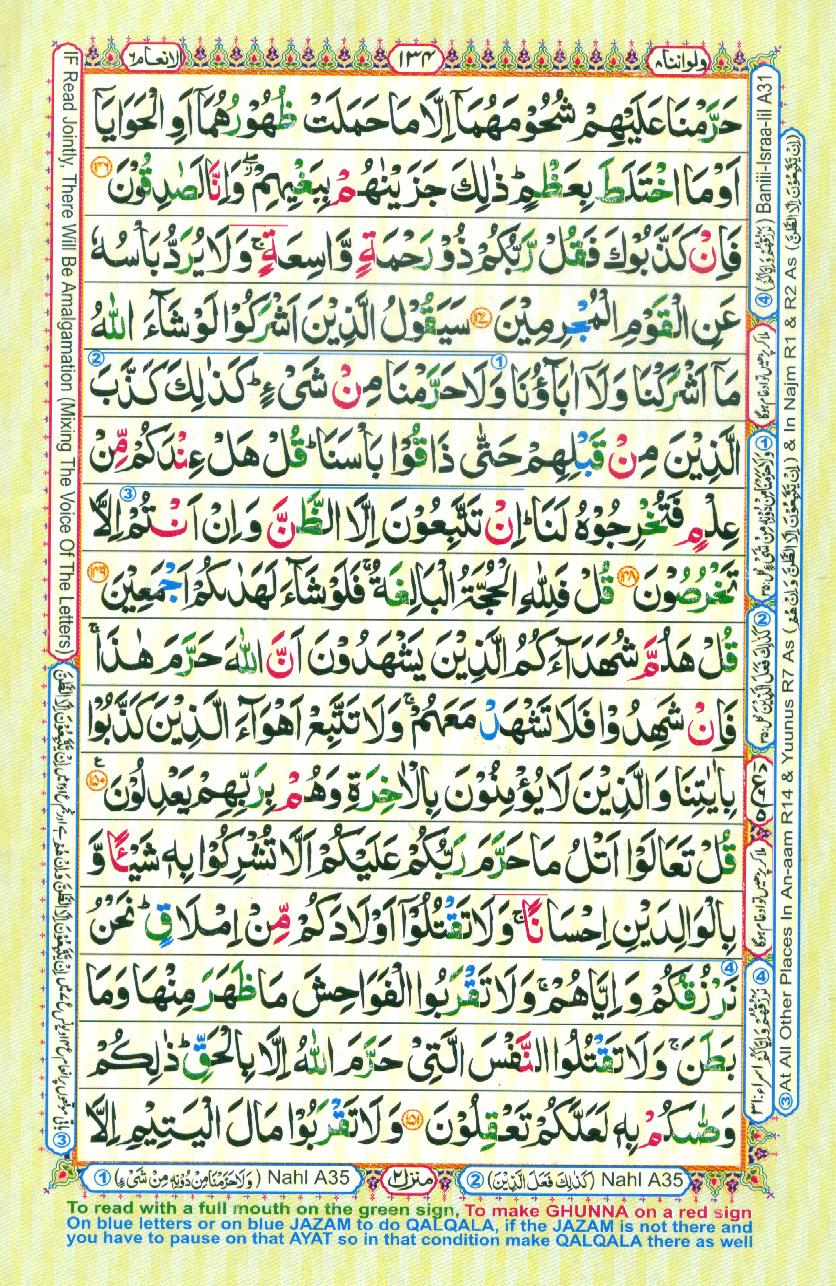 ولواننا ٨
١٣٤
الانعام ٦
حَرَّمْنَا عَلَيْهِمْ شُحُوْمَهُمَاۤ اِلَّا مَا حَمَلَتْ ظُهُوْرُهُمَاۤ اَوِ الْحَوَايَاۤ
اَوْ مَا اخْتَلَطَ بِعَظْمٍ ؕ ذٰلِكَ جَزَيْنٰهُمْ بِبَغْيِهِمْ ۖ وَاِنَّا لَصٰدِقُوْنَ ﴿۱۴۶﴾
فَاِنْ كَذَّبُوْكَ فَقُلْ رَّبُّكُمْ ذُوْ رَحْمَةٍ وَّاسِعَةٍ ۚ وَلَا يُرَدُّ بَاْسُهٗ
عَنِ الْقَوْمِ الْمُجْرِمِيْنَ ﴿۱۴۷﴾ سَيَقُوْلُ الَّذِيْنَ اَشْرَكُوْا لَوْ شَآءَ اللّٰهُ
مَاۤ اَشْرَكْنَا وَلَاۤ اٰبَآؤُنَا وَلَا حَرَّمْنَا مِنْ شَیْءٍ ؕ كَذٰلِكَ كَذَّبَ
الَّذِيْنَ مِنْ قَبْلِهِمْ حَتّٰى ذَاقُوْا بَاْسَنَا ؕ قُلْ هَلْ عِنْدَكُمْ مِّنْ
عِلْمٍ فَتُخْرِجُوْهُ لَنَا ؕ اِنْ تَتَّبِعُوْنَ اِلَّا الظَّنَّ وَاِنْ اَنْتُمْ اِلَّا
تَخْرُصُوْنَ ﴿۱۴۸﴾ قُلْ فَلِلّٰهِ الْحُجَّةُ الْبَالِغَةُ ۚ فَلَوْ شَآءَ لَهَدٰىكُمْ اَجْمَعِيْنَ ﴿۱۴۹﴾
قُلْ هَلُمَّ شُهَدَآءَكُمُ الَّذِيْنَ يَشْهَدُوْنَ اَنَّ اللّٰهَ حَرَّمَ هٰذَا ۚ
فَاِنْ شَهِدُوْا فَلَا تَشْهَدْ مَعَهُمْ ۚ وَلَا تَتَّبِعْ اَهْوَآءَ الَّذِيْنَ كَذَّبُوْا
بِاٰيٰتِنَا وَالَّذِيْنَ لَا يُؤْمِنُوْنَ بِالْاٰخِرَةِ وَهُمْ بِرَبِّهِمْ يَعْدِلُوْنَ ﴿۱۵۰﴾
قُلْ تَعَالَوْا اَتْلُ مَا حَرَّمَ رَبُّكُمْ عَلَيْكُمْ اَلَّا تُشْرِكُوْا بِهٖ شَيْـًٔا وَّ
بِالْوَالِدَيْنِ اِحْسَانًا ۚ وَلَا تَقْتُلُوْۤا اَوْلَادَكُمْ مِّنْ اِمْلَاقٍ ؕ نَحْنُ
نَرْزُقُكُمْ وَاِيَّاهُمْ ۚ وَلَا تَقْرَبُوا الْفَوَاحِشَ مَا ظَهَرَ مِنْهَا وَمَا
بَطَنَ ۚ وَلَا تَقْتُلُوا النَّفْسَ الَّتِیْ حَرَّمَ اللّٰهُ اِلَّا بِالْحَقِّ ؕ ذٰلِكُمْ
وَصّٰىكُمْ بِهٖ لَعَلَّكُمْ تَعْقِلُوْنَ ﴿۱۵۱﴾ وَلَا تَقْرَبُوْا مَالَ الْيَتِيْمِ اِلَّا
① (وَلَا حَرَّمْنَا مِنْ دُوْنِهٖ مِنْ شَیْءٍ) Nahl A35
منزل ٢
② (كَذٰلِكَ فَعَلَ الَّذِيْنَ) Nahl A35
To read with a full mouth on the green sign, To make GHUNNA on a red sign
On blue letters or on blue JAZAM to do QALQALA, if the JAZAM is not there and
you have to pause on that AYAT so in that condition make QALQALA there as well
IF Read Jointly, There Will Be Amalgamation (Mixing The Voice Of The Letters)
④ (نَرْزُقُهُمْ وَاِيَّاكُمْ) Baniii-Israa-lil A31
③ At All Other Places In An-aam R14 & Yuunus R7 As (اِنْ يَّتَّبِعُوْنَ اِلَّا الظَّنَّ وَاِنْ هُمْ) & In Najm R1 & R2 As (اِنْ يَّتَّبِعُوْنَ اِلَّا الظَّنَّ)